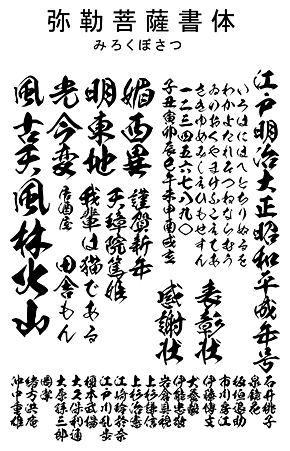 弥勒菩薩書体
みろくぼさつ
江戸明治大正昭和平成年号
いろはにほへとちりぬるを
わかよたれそつねならむう
ゐのおくやまけふこえてあ
さきゆめみしゑひもせすん
一二三四五六七八九〇
子丑寅卯辰巳午未申酉戌亥
表彰状
感謝状
媚西異
謹賀新年
天璋院篤姫
明東地
我輩は猫である
光今変
居酒屋 田舎もん
風古天風林火山
石井桃子
泉鏡花
板垣退助
市川房江
伊藤博文
伊能忠敬
岩倉具視
上杉謙信
上杉治憲
江崎玲於奈
江戸川乱歩
榎本武揚
大久保利通
大原孫三郎
岡潔
緒方洪庵
沖中重雄